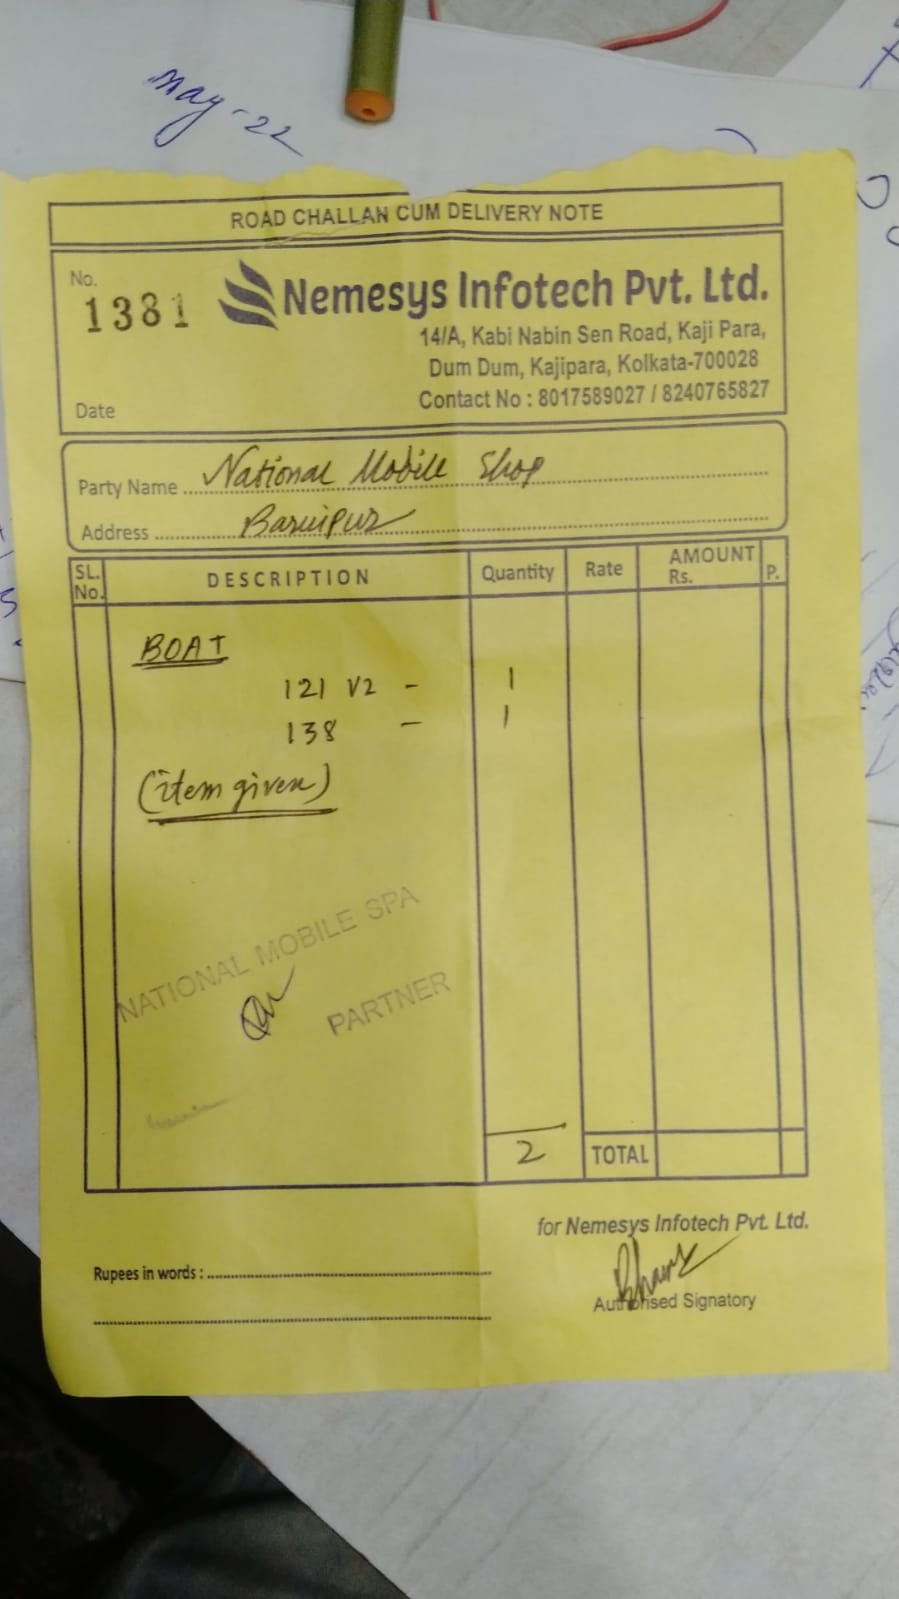 may-22
ROAD CHALLAN CUM DELIVERY NOTE
No.
1381
Nemesys Infotech Pvt. Ltd.
14/A, Kabi Nabin Sen Road, Kaji Para,
Dum Dum, Kajipara, Kolkata-700028
Contact No : 8017589027 / 8240765827
Date
Party Name National Mobile Shop
Address Baruipur
SL. No. DESCRIPTION Quantity Rate AMOUNT Rs. P.
BOAT
121 V2 - 1
138 - 1
(item given)
NATIONAL MOBILE SPA
PARTNER
2 TOTAL
for Nemesys Infotech Pvt. Ltd.
Rupees in words :
Authorised Signatory